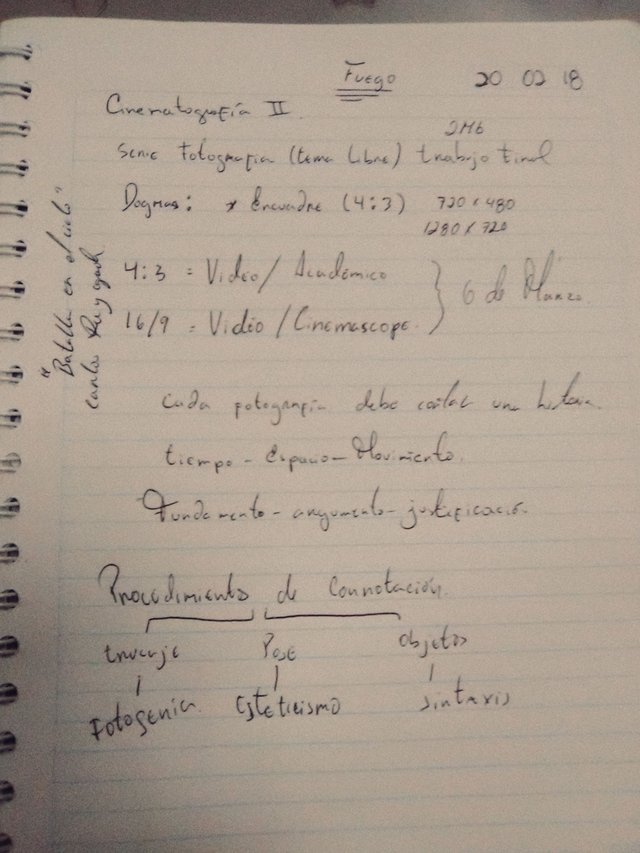 Fuego 20 02 18
Cinematografía II
2Mb
Serie fotografia (tema Libre) trabajo final
Dogmas: * Encuadre (4:3) 720 x 480
1280 x 720
4:3 = Video / Académico
16/9 = Video / Cinemascope.
} 6 de Marzo.
"Batalla en el cielo"
Carlos Reygada
Cada fotografía debe contar una historia.
tiempo - Espacio - Movimiento.
Fundamento - argumento - justificación.
Procedimiento de Connotación.
trucaje Pose objetos
Fotogenia. Esteticismo sintaxis